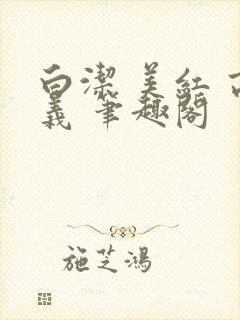 白潔 美紅 高
義 筆趣閣
施芝鴻